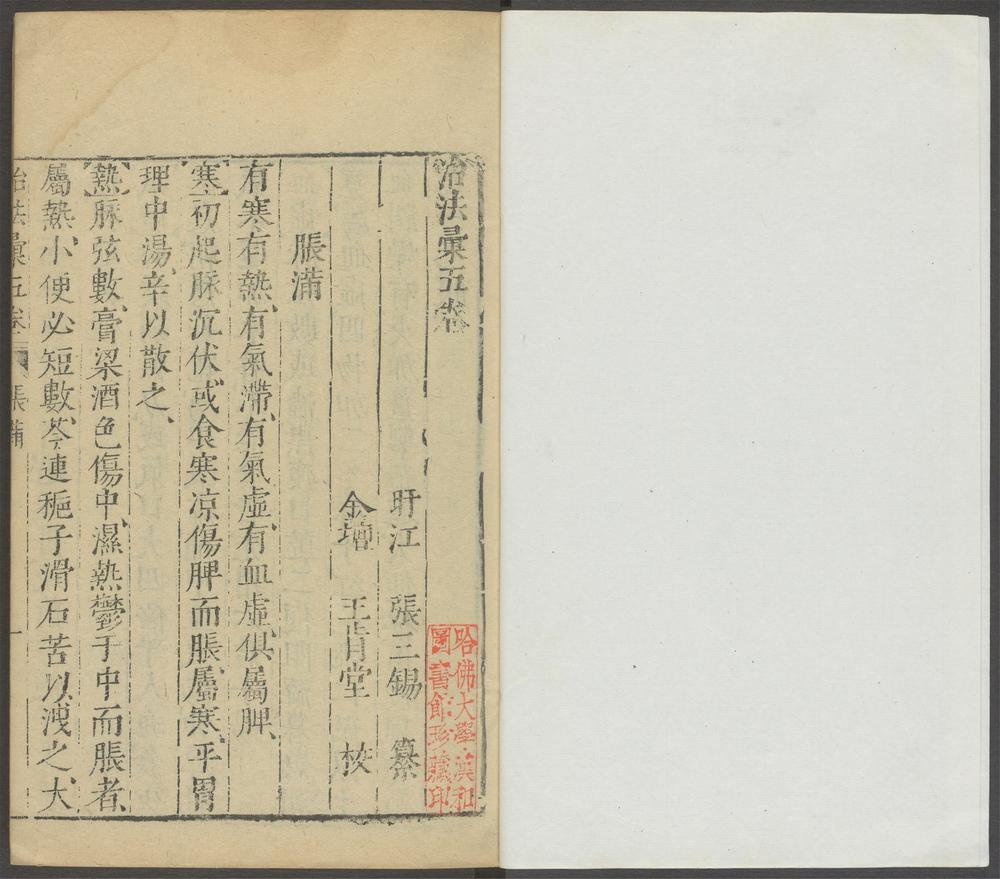 治法彙五卷
盱江 張三錫 纂
金壇 王肯堂 校
脹滿
有寒、有熱、有氣滯、有氣虛、有血虛、俱屬脾、
寒初起脉沉伏、或食寒凉傷脾而脹、屬寒、平胃
理中湯、辛以散之、
熱脉弦數、膏梁酒色傷中、濕熱鬱于中而脹者、
屬熱、小便必短數、芩連梔子滑石苦以洩之、大
治法彙五卷 脹滿 一
哈佛大學漢和
圖書館珍藏印